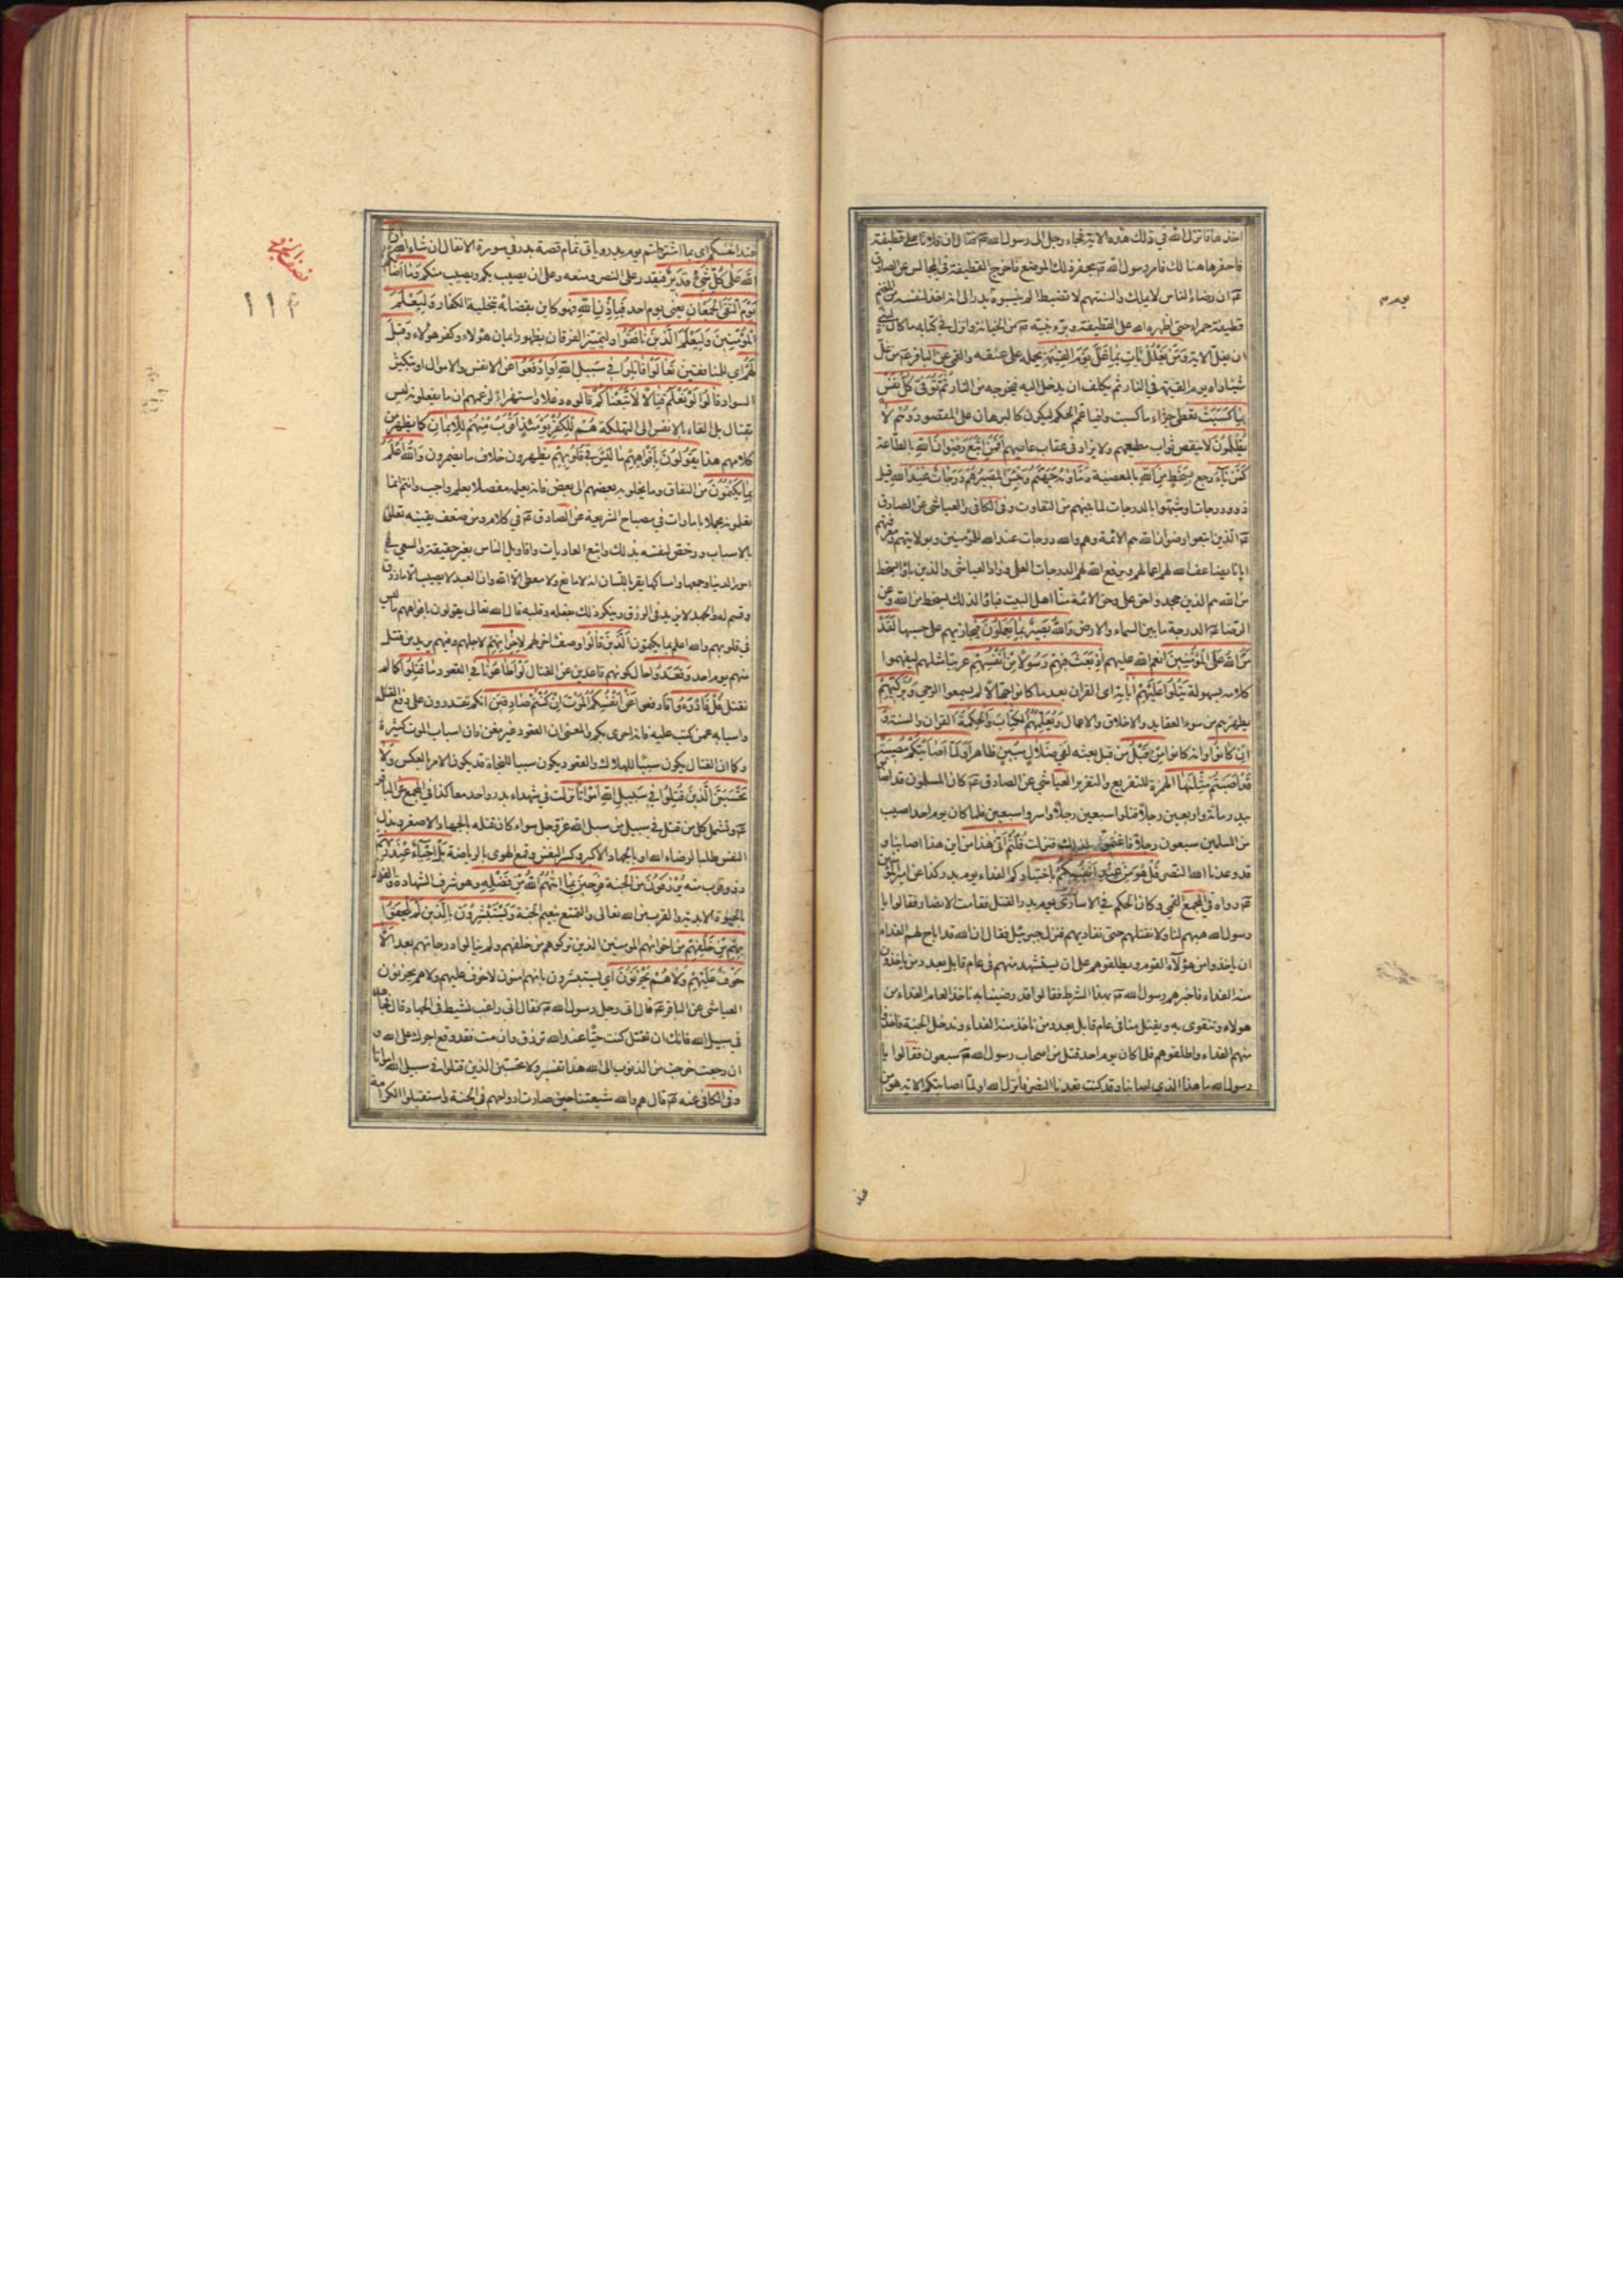 اخذها فانزل الله في ذلك هذه الاية فجاء رجل الى رسول الله فقال ان فلانا غل قطيفة
فاحفرها هنالك فامر رسول الله بحفر ذلك الموضع فاخرج القطيفة في المجالس عن الصادق
ان رضاء الناس لا يملك والسنتهم لا تضبط الم ينسبوه يوم بدر الى انه اخذ لنفسه من المغنم
قطيفة حمراء حتى اظهره الله على القطيفة وبرء نبيه من الخيانة وانزل في كتابه ما كان لنبي
ان يغل الاية ومن يغلل يأت بما غل يوم القيمة يحمله على عنقه والقمي عن الباقر من غل
شيئا راه يوم القيمة في النار ثم يكلف ان يدخل اليه فيخرجه من النار ثم توفى كل نفس
بما كسبت تعطى جزاء ما كسبت وافيا عم الحكم ليكون كالبرهان على المقصود وهم لا
يظلمون لا ينقص ثواب مطيعهم ولا يزاد في عقاب عاصيهم افمن اتبع رضوان الله بالطاعة
كمن باء رجع بسخط من الله بالمعصية ومأواه جهنم وبئس المصير هم درجات عند الله قيل
ذوو درجات او شبهوا بالدرجات لما بينهم من التفاوت وفي الكافي والعياشي عن الصادق
الذين اتبعوا رضوان الله هم الائمة وهم والله درجات عند الله للمؤمنين وبولايتهم ومعرفتهم
ايانا يضاعف الله لهم اعمالهم ويرفع الله لهم الدرجات العلى وزاد العياشي والذين باؤا بسخط
من الله هم الذين جحدوا حق علي وحق الائمة منا اهل البيت فباؤا لذلك بسخط من الله وعن
الرضا الدرجة ما بين السماء والارض والله بصير بما يعملون فيجازيهم على حسبها لقد
من الله على المؤمنين انعم الله عليهم اذ بعث فيهم رسولا من انفسهم عربيا مثلهم ليفهموا
كلامه بسهولة يتلوا عليهم اياته اي القران بعد ما كانوا جهالا لم يسمعوا الوحي ويزكيهم
يطهرهم من سوء العقايد والاخلاق والاعمال ويعلمهم الكتاب والحكمة القران والسنة و
ان كانوا وانه كانوا من قبل من قبل بعثه لفي ضلال مبين ظاهر اولما اصابتكم مصيبة
قد اصبتم مثليها الهمزة للتقريع والتقرير العياشي عن الصادق كان المسلمون قد اصابوا
ببدر مأة واربعين رجلا قتلوا سبعين رجلا واسروا سبعين فلما كان يوم احد اصيب
من المسلمين سبعون رجلا فاغتموا لذلك فنزلت قلتم انى هذا من اين هذا اصابنا و
قد وعدنا الله النصر قل هو من عند انفسكم باختياركم الفداء يوم بدر كذا عن امير المؤمنين
رواه في المجمع القمي وكان الحكم في الاسارى يوم بدر القتل فقامت الانصار فقالوا يا
رسول الله هبهم لنا ولا تقتلهم حتى نفاديهم فنزل جبرئيل فقال ان الله قد اباح لهم الفداء
ان ياخذوا من هؤلاء القوم ويطلقوهم على ان يستشهد منهم في عام قابل بعدد من ياخذون
منه الفداء فاخبرهم رسول الله بهذا الشرط فقالوا قد رضينا به ناخذ العام الفداء من
هولاء ونتقوى به ويقتل منا في عام قابل بعدد من ناخذ منه الفداء وندخل الجنة فاخذوا
منهم الفداء واطلقوهم فلما كان يوم احد قتل من اصحاب رسول الله سبعون فقالوا يا
رسول الله ما هذا الذي اصابنا وقد كنت تعدنا النصر فانزل الله اولما اصابتكم الاية هو من
عند انفسكم اي بما اشترطتم يوم بدر وياتي تمام قصة بدر في سورة الانفال ان شاء الله ان
الله على كل شيء قدير فيقدر على النصر ومنعه وعلى ان يصيب بكم ويصيب منكم وما اصابكم
يوم التقى الجمعان يعني يوم احد فباذن الله فهو كاين بقضائه تخلية الكفار وليعلم
المؤمنين وليعلم الذين نافقوا وليتميز الفرقان بظهور ايمان هؤلاء وكفر هؤلاء وقيل
لهم اي للمنافقين تعالوا قاتلوا في سبيل الله او ادفعوا عن الانفس والاموال او بتكثير
السواد قالوا لو نعلم قتالا لاتبعناكم قالوه دغلا واستهزاء لزعمهم ان ما يفعلونه ليس
بقتال بل القاء بالانفس الى التهلكة هم للكفر يومئذ اقرب منهم للايمان كما يظهر من
كلامهم هذا يقولون بافواههم ما ليس في قلوبهم يظهرون خلاف ما يضمرون والله اعلم
بما يكتمون من النفاق وما يخلو به بعضهم الى بعض فانه يعلمه مفصلا بعلم واجب وانتم انما
تعلمونه مجملا بامارات في مصباح الشريعة عن الصادق في كلام ومن ضعف يقينه تعلق
بالاسباب ورخص لنفسه بذلك واتبع العادات واقاويل الناس بغير حقيقة والسعي في
امور الدنيا وجمعها وامساكها يقر باللسان انه لا مانع ولا معطي الا الله وان العبد لا يصيب الا ما رزق
وقسم له والجهد لا يزيد في الرزق وينكر ذلك بفعله وقلبه قال الله تعالى يقولون بافواههم ما ليس
في قلوبهم والله اعلم بما يكتمون الذين قالوا وصف اخر لهم لاخوانهم لاجلهم وفيهم يريد من قتل
منهم يوم احد وقعدوا حال كونهم قاعدين عن القتال لو اطاعونا في القعود ما قتلوا كما لم
نقتل قل فادرؤا فادفعوا عن انفسكم الموت ان كنتم صادقين انكم تقدرون على دفع القتل
واسبابه عمن كتب عليه فانه احرى بكم والمعنى ان القعود غير مغن فان اسباب الموت كثيرة
وكما ان القتال يكون سببا للهلاك والقعود يكون سببا للنجاة قد يكون الامر بالعكس ولا
تحسبن الذين قتلوا في سبيل الله امواتا نزلت في شهداء بدر واحد معا كذا في المجمع عن الباقر
وتشمل كل من قتل في سبيل من سبل الله عز وجل سواء كان قتله بالجهاد الاصغر وبذل
النفس طلبا لرضاء الله او بالجهاد الاكبر وكسر النفس وقمع الهوى بالرياضة بل احياء عند ربهم
ذوو قرب منه يرزقون من الجنة فرحين بما اتيهم الله من فضله وهو شرف الشهادة والفوز
بالحيوة الابدية والقرب من الله تعالى والتمتع بنعيم الجنة ويستبشرون بالذين لم يلحقوا
بهم من خلفهم من اخوانهم المومنين الذين تركوهم من خلفهم ولم ينالوا درجاتهم بعد الا
خوف عليهم ولا هم يحزنون اي يستبشرون بانهم امنون لا خوف عليهم ولا هم يحزنون
العياشي عن الباقر قال اتى رجل رسول الله فقال اني راغب نشيط في الجهاد قال فجاهد
في سبيل الله فانك ان تقتل كنت حيا عند الله ترزق وان مت فقد وقع اجرك على الله و
ان رجعت خرجت من الذنوب الى الله هذا تفسير ولا تحسبن الذين قتلوا في سبيل الله امواتا
وفي الكافي عنه قال هم والله شيعتنا حين صارت ارواحهم في الجنة واستقبلوا الكرامة
عند
١١٣